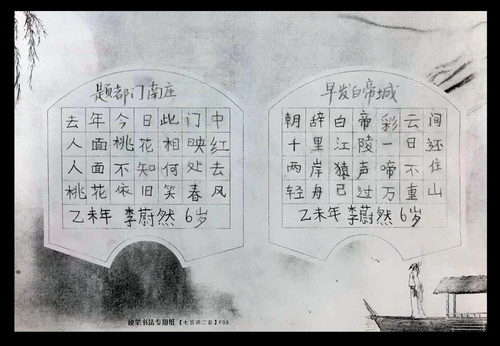 题都门南庄
去年今日此门中
人面桃花相映红
人面不知何处去
桃花依旧笑春风
乙未年 李蔚然 6岁
早发白帝城
朝辞白帝彩云间
千里江陵一日还
两岸猿声啼不住
轻舟已过万重山
乙未年 李蔚然 6岁
硬笔书法专用纸【七言诗二首】F03